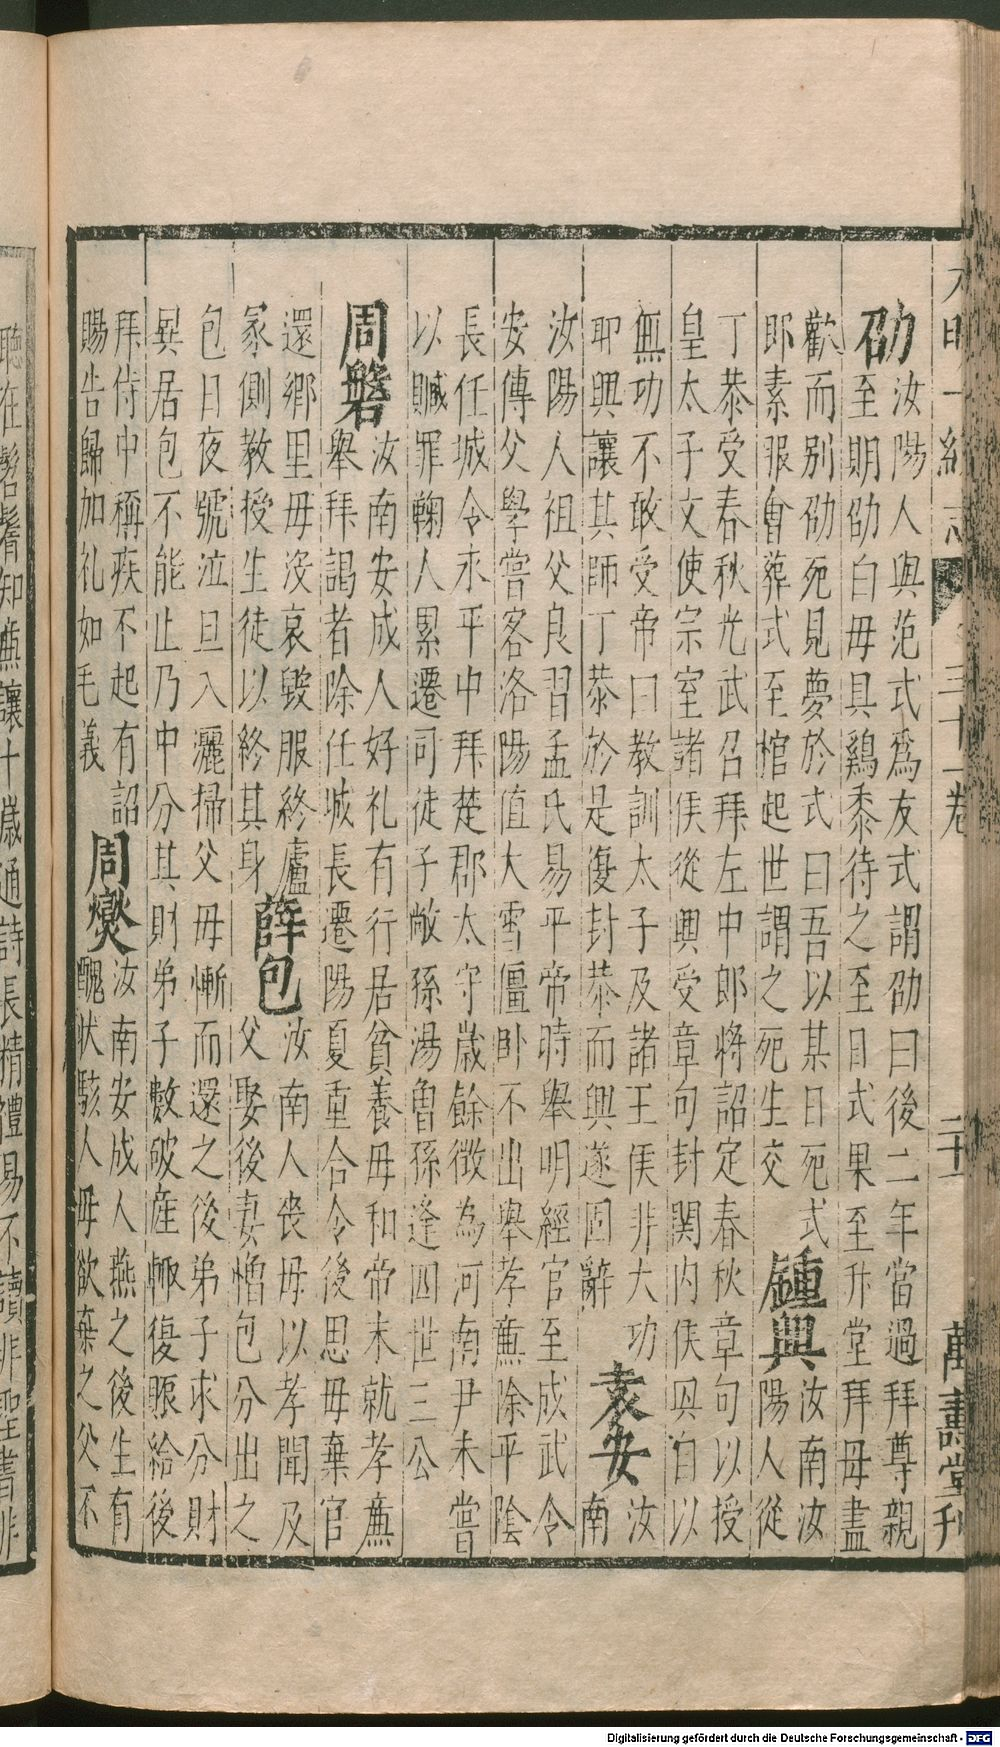 大明一統志 三十一卷 二十 萬壽堂刊
劭
汝陽人與范式爲友式謂劭曰後二年當過拜尊親
至期劭白母具鷄黍待之至日式果至升堂拜母盡
歡而别劭死見夢於式曰吾以某日死式
郎素服會葬式至棺起世謂之死生交
鍾興
汝南汝
陽人從
丁恭受春秋光武召拜左中郎將詔定春秋章句以授
皇太子文使宗室諸侯從興受章句封関内侯㒷自以
無功不敢受帝曰教訓太子及諸王侯非大功
耶興讓其師丁恭於是復封恭而興遂固辭
袁安
汝
南
汝陽人祖父良習孟氏易平帝時舉明經官至成武令
安傳父學嘗客洛陽值大雪僵卧不出舉孝廉除平陰
長任城令永平中拜楚郡太守歲餘徵為河南尹未嘗
以贓罪鞠人累遷司徒子敞孫湯曽孫逢四世三公
周磐
汝南安成人好礼有行居貧養母和帝末就孝廉
舉拜謁者除任城長遷陽夏重合令後思母棄官
還鄉里母没哀毀服終廬
冢側教授生徒以終其身
薛包
汝南人喪母以孝聞及
父娶後妻憎包分出之
包日夜號泣旦入灑掃父母慚而還之後弟子求分財
異居包不能止乃中分其財弟子數破産輒復賑給後
拜侍中稱疾不起有詔
賜告歸加礼如毛義
周燮
汝南安成人燕之後生有
醜状駭人母欲棄之父不
聽在髫鬌知廉讓十歲通詩長精禮易不讀非聖書非
Digitalisierung gefördert durch die Deutsche Forschungsgemeinschaft - DFG